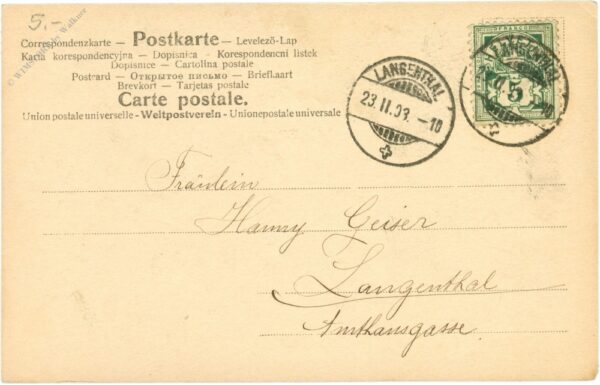 5.-
Correspondenzkarte — Postkarte — Levelező-Lap
Karta korespondencyjna — Dopisnica — Korespondencni listek
Dopisnice — Cartolina postale
Postcard — Открытое письмо — Brieflaart
Brevkort — Tarjetas postale
Carte postale.
Union postale universelle - Weltpostverein - Unione postale universale
LANGENTHAL
23.II.09. — 10
FRANCO
LANGENTHAL
5
Fräulein
Hanny Geiser
Langenthal
Amthausgasse